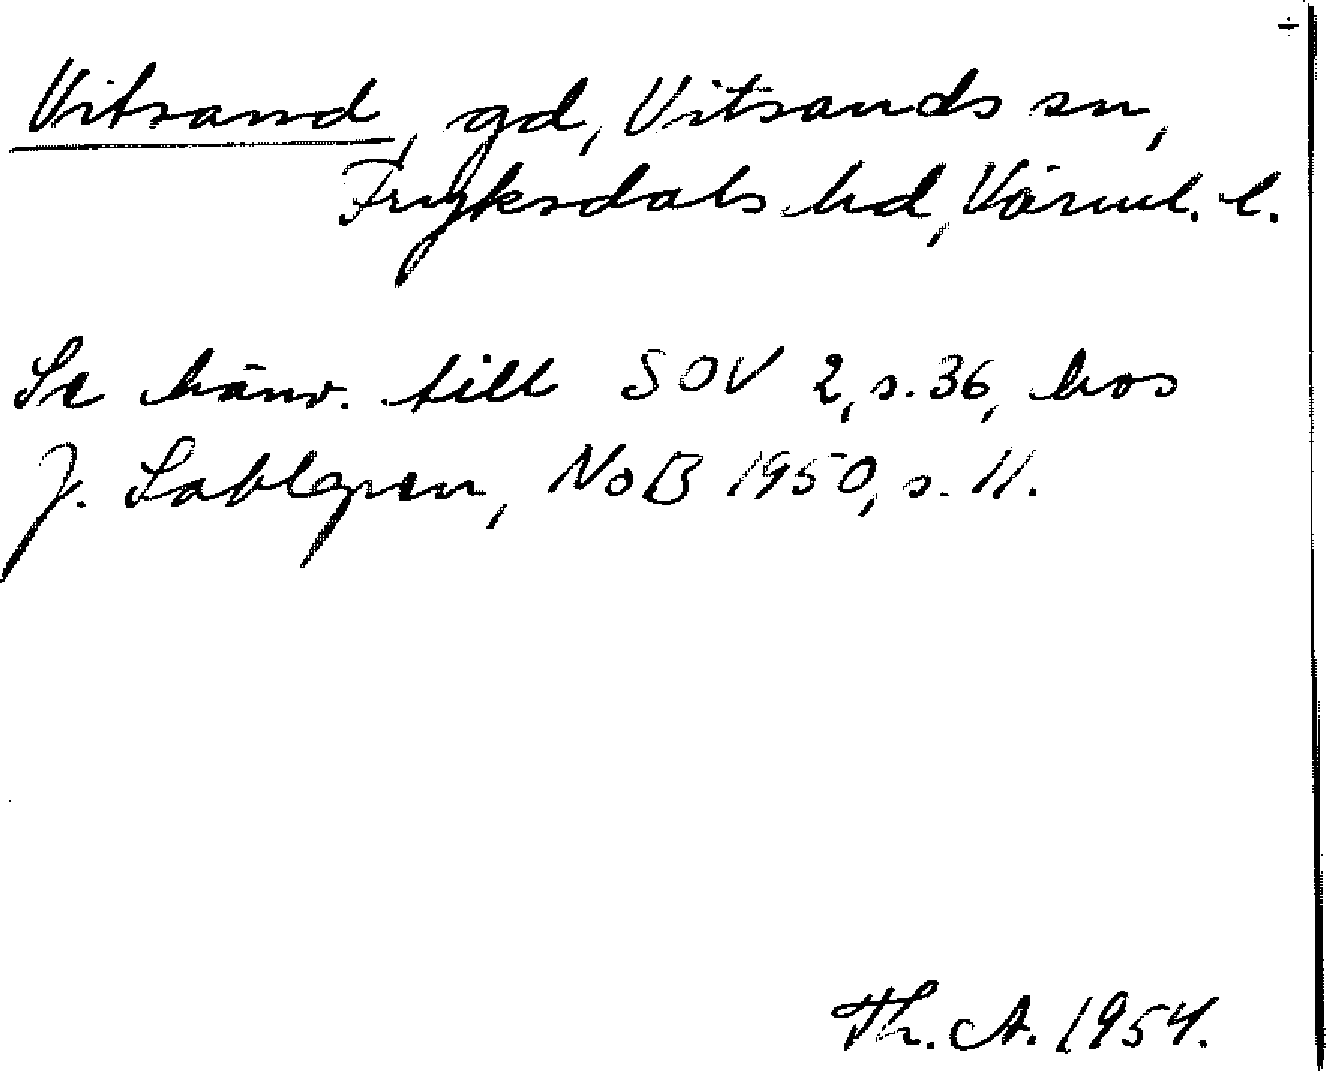 Vitsand, gd, Vitsands sn,
Fryksdals hd, Värml. l.
Se hänv. till SOV 2, s. 36, hos
J. Sahlgren, NoB 1950, s. 11.
Th. A. 1954.